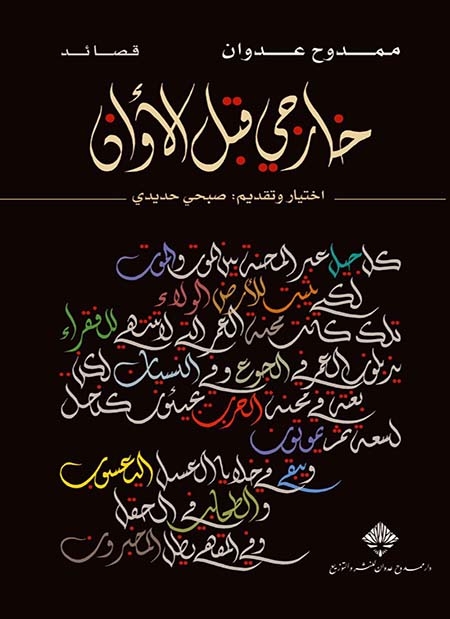 ممدوح عدوان
قصائد
خارجي قبل الأوان
اختيار وتقديم: صبحي حديدي
كل جيل عبر المحنة بين الموت والموت
لكي يثبت للأرض الولاء
تلك كانت محنة العمر التي لا تنتهي للفقراء
يربطون العمر في الجوع وفي النسيان لكن
بغتة في محنة الحرب يجيئون كنحل
لسعة ثم يموتون
ويبقى في خلايا العسل اليعسوب
والطحلب في الحقل
وفي المقهى يظل المخبرون
دار ممدوح عدوان للنشر والتوزيع